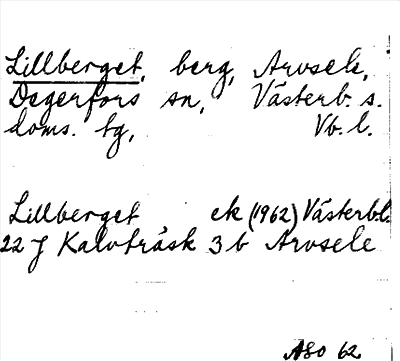 Lillberget, berg, Arvsele,
Degerfors sn, Västerb. s.
doms. tg, Vb. l.
Lillberget ek (1962) Västerbl.
22 J Kalvträsk 3 b Arvsele
ASO 62